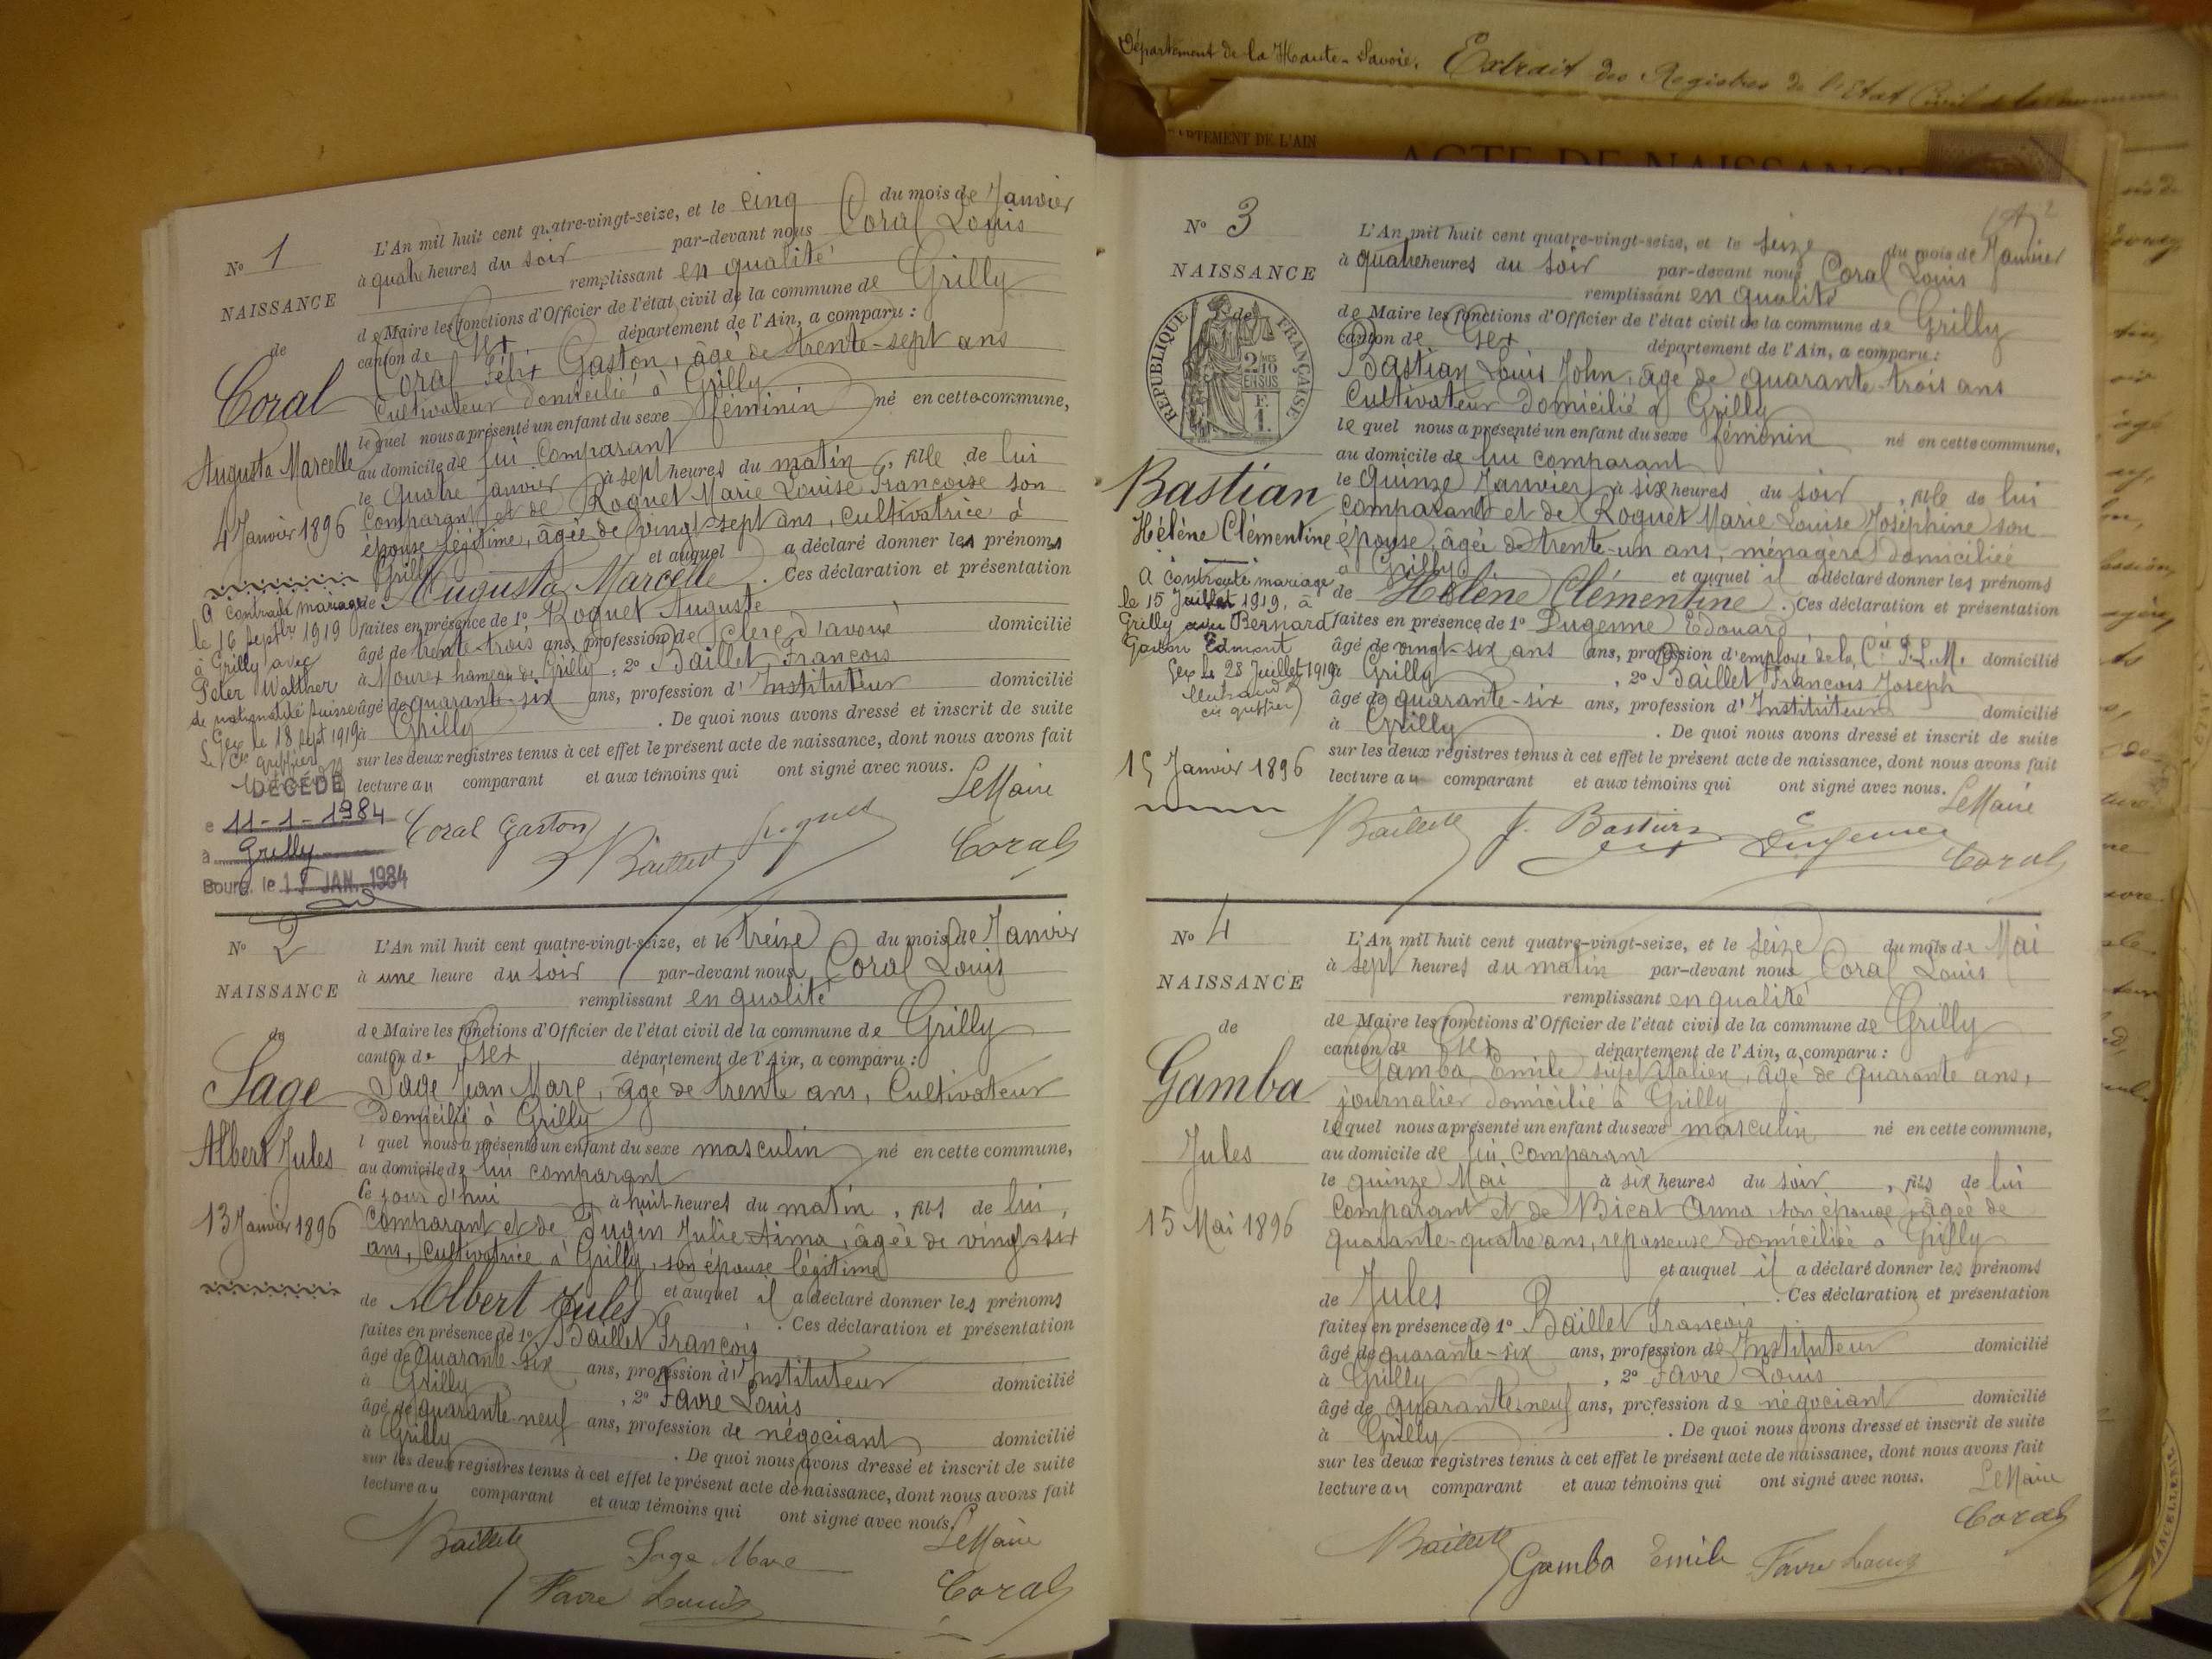 Département de la Haute-Savoie. Extrait des Registres de l'Etat Civil de la commune
PARTEMENT DE L'AIN
ACTE DE NAISSANCE
No 1
NAISSANCE
de
Coral
Augusta Marcelle
4 Janvier 1896
A contracté mariage
le 16 septbre 1919
à Grilly avec
Peter Walther
de nationalité suisse
Gex le 18 sept 1919
Le Cis greffier
DÉCÉDÉ
e 11-1-1984
à Grilly
Bourg, le 1 JAN. 1984
L'An mil huit cent quatre-vingt-seize, et le cinq du mois de Janvier
à quatre heures du soir par-devant nous Coral Louis
remplissant en qualité
de Maire les fonctions d'Officier de l'état civil de la commune de Grilly
canton de Gex département de l'Ain, a comparu :
Coral Félix Gaston, âgé de trente-sept ans
Cultivateur domicilié à Grilly
lequel nous a présenté un enfant du sexe féminin né en cette commune,
au domicile de lui comparant
le quatre Janvier à sept heures du matin, fille de lui
comparant et de Roquet Marie Louise Françoise son
épouse légitime, âgée de vingt-sept ans, cultivatrice à
Grilly et auquel a déclaré donner les prénoms
de Augusta Marcelle . Ces déclaration et présentation
faites en présence de 1o Roquet Auguste
âgé de trente-trois ans, profession de clerc d'avoué domicilié
à Mourex hameau de Grilly, 2o Baillet François
âgé de quarante-six ans, profession d'Instituteur domicilié
à Grilly . De quoi nous avons dressé et inscrit de suite
sur les deux registres tenus à cet effet le présent acte de naissance, dont nous avons fait
lecture au comparant et aux témoins qui ont signé avec nous.
Le Maire
Coral Gaston Baillet Roquet Coral
No 2
NAISSANCE
de
Sage
Albert Jules
13 Janvier 1896
L'An mil huit cent quatre-vingt-seize, et le treize du mois de Janvier
à une heure du soir par-devant nous Coral Louis
remplissant en qualité
de Maire les fonctions d'Officier de l'état civil de la commune de Grilly
canton de Gex département de l'Ain, a comparu :
Sage Jean Marc, âgé de trente ans, Cultivateur
domicilié à Grilly
l quel nous a présenté un enfant du sexe masculin né en cette commune,
au domicile de lui comparant
le jour d'hui à huit heures du matin, fils de lui,
comparant et de Dugin Julie Aima, âgée de vingt-six
ans, cultivatrice à Grilly, son épouse légitime
et auquel il a déclaré donner les prénoms
de Albert Jules . Ces déclaration et présentation
faites en présence de 1o Baillet François
âgé de quarante-six ans, profession d'Instituteur domicilié
à Grilly, 2o Favre Louis
âgé de quarante neuf ans, profession de négociant domicilié
à Grilly . De quoi nous avons dressé et inscrit de suite
sur les deux registres tenus à cet effet le présent acte de naissance, dont nous avons fait
lecture au comparant et aux témoins qui ont signé avec nous.
Le Maire
Baillet Sage Marc
Favre Louis Coral
No 3
NAISSANCE
de
RÉPUBLIQUE FRANÇAISE
2 MES
10
EN SUS
F.
1.
Bastian
Hélène Clémentine
A contracté mariage
le 15 Juillet 1919, à
Grilly avec Bernard
Gaston Edmont
Gex le 28 Juillet 1919
cis greffier
15 Janvier 1896
L'An mil huit cent quatre-vingt-seize, et le seize du mois de Janvier
à quatre heures du soir par-devant nous Coral Louis
remplissant en qualité
de Maire les fonctions d'Officier de l'état civil de la commune de Grilly
canton de Gex département de l'Ain, a comparu :
Bastian Louis John, âgé de quarante-trois ans
Cultivateur domicilié à Grilly
lequel nous a présenté un enfant du sexe féminin né en cette commune,
au domicile de lui comparant
le quinze Janvier à six heures du soir, fille de lui
comparant et de Roquet Marie Louise Joséphine son
épouse, âgée de trente-un ans, ménagère domiciliée
à Grilly et auquel il a déclaré donner les prénoms
de Hélène Clémentine . Ces déclaration et présentation
faites en présence de 1o Dugenne Edouard,
âgé de vingt-six ans ans, profession d'employé de la Cie P.L.M. domicilié
à Grilly, 2o Baillet François Joseph
âgé de quarante-six ans, profession d'Instituteur domicilié
à Grilly . De quoi nous avons dressé et inscrit de suite
sur les deux registres tenus à cet effet le présent acte de naissance, dont nous avons fait
lecture au comparant et aux témoins qui ont signé avec nous.
Le Maire
Baillet Coral
No 4
NAISSANCE
de
Gamba
Jules
15 Mai 1896
L'An mil huit cent quatre-vingt-seize, et le seize du mois de Mai
à sept heures du matin par-devant nous Coral Louis
remplissant en qualité
de Maire les fonctions d'Officier de l'état civil de la commune de Grilly
canton de Gex département de l'Ain, a comparu :
Gamba Emile sujet italien, âgé de quarante ans,
journalier domicilié à Grilly
lequel nous a présenté un enfant du sexe masculin né en cette commune,
au domicile de lui comparant
le quinze Mai à six heures du soir, fils de lui
comparant et de Bicat Anna son épouse âgée de
quarante-quatre ans, repasseuse domiciliée à Grilly
et auquel il a déclaré donner les prénoms
de Jules . Ces déclaration et présentation
faites en présence de 1o Baillet François
âgé de quarante-six ans, profession de Instituteur domicilié
à Grilly, 2o Favre Louis
âgé de quarante-neuf ans, profession de négociant domicilié
à Grilly . De quoi nous avons dressé et inscrit de suite
sur les deux registres tenus à cet effet le présent acte de naissance, dont nous avons fait
lecture au comparant et aux témoins qui ont signé avec nous.
Le Maire
Coral
Baillet Gamba Emile Favre Louis